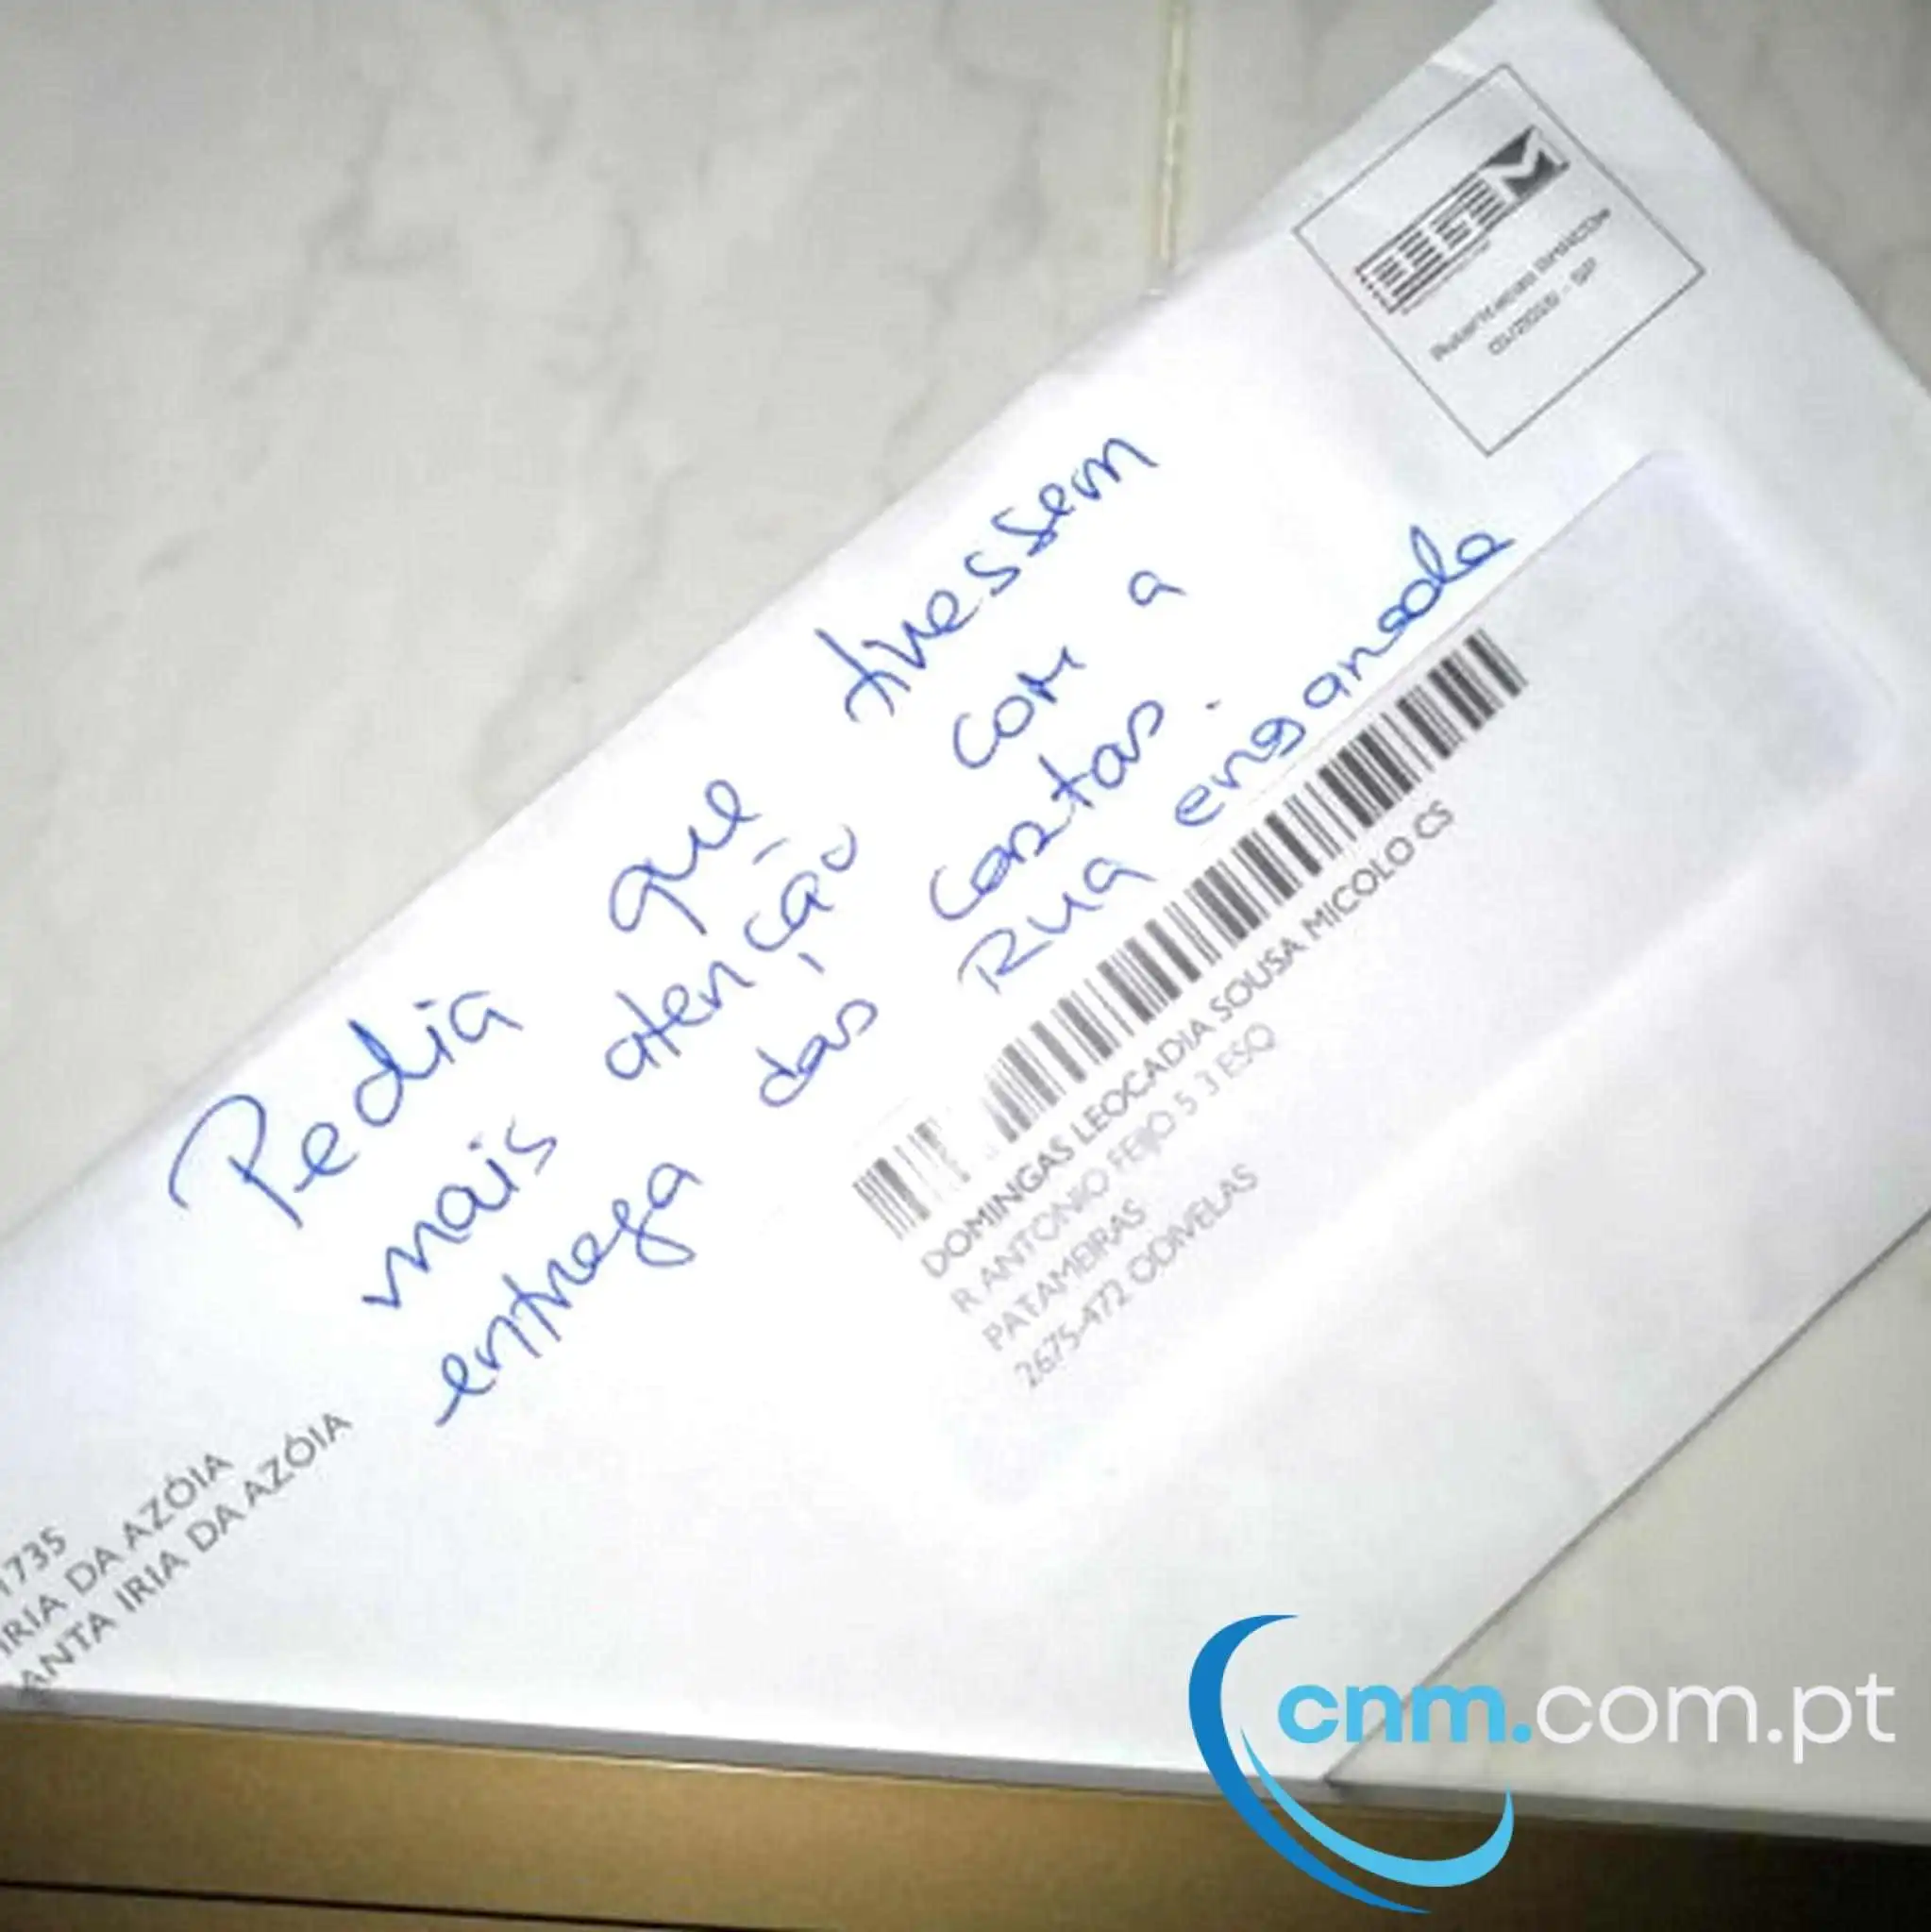 Pedia que tivessem
mais atenção com a
entrega das cartas.
Rua enganada
DOMINGAS LEOCADIA SOUSA MICOLO CS
R ANTONIO FEIJO 5 3 ESQ
PATAMEIRAS
2675-472 ODIVELAS
1735
IRIA DA AZÓIA
ANTA IRIA DA AZÓIA
cnm.com.pt